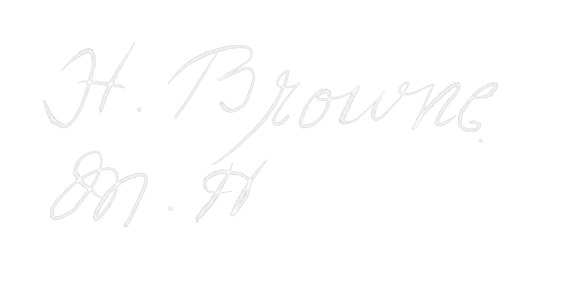 H. Browne.
M. H